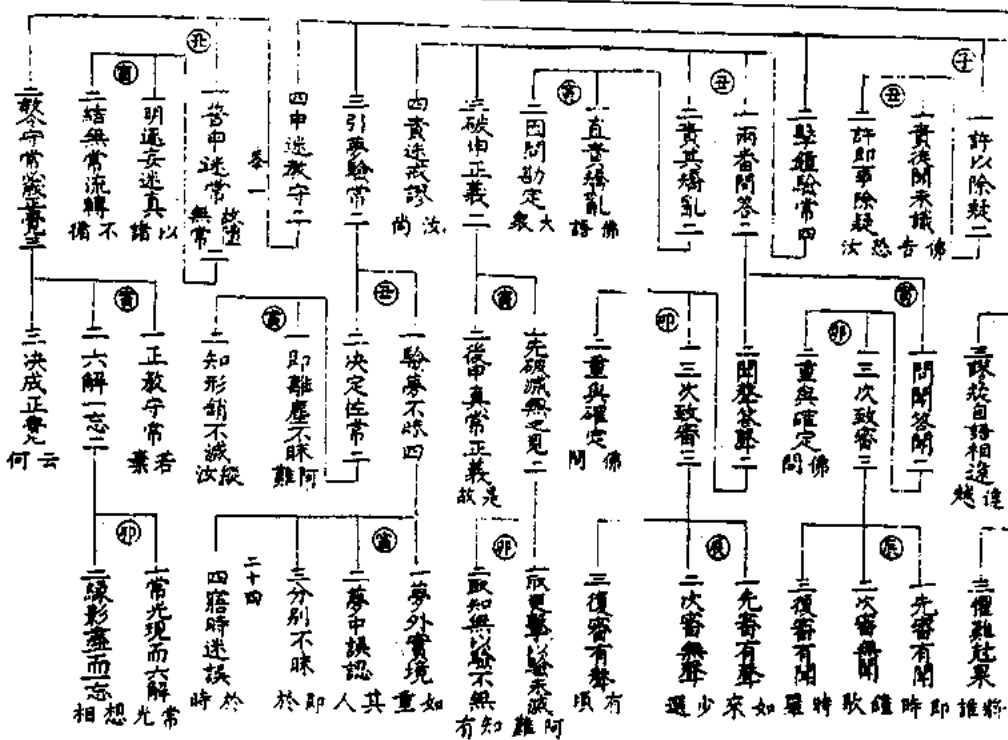 子
一許以除疑二
丑
一責後聞未識
二許即事除疑
佛告恐汝
三擊鐘驗常四
丑
一兩番問答二
二責其矯亂二
寅
一直責矯亂
佛語大眾
二因問勘定
三破申正義二
四責迷戒謬
汝尚
三引夢驗常二
四申迷教守二
丑
一答申迷常
故墮無常
二
答一
寅
一明遺妄迷真
以諸不循
二結無常流轉
二教令守常
三謀從自語相違
違越
寅
一問聞答聞二
卯
一三次致審三
二重與確定
佛問
二問聲答聲二
卯
一三次致審三
二重與確定
佛問
寅
一先破滅無之見二
二後申真常正義
是故
丑
一驗夢不昧四
二決定佐常二
寅
一即離塵不昧
阿難
二知形銷不滅
縱汝
寅
一正教守常
若棄
二六解一忘二
三決成正覺
云何
三懼難杜果
將誰
辰
一先審有聞
即時
二次審無聞
鐘歇
三復審有聞
時羅
辰
一先審有聲
如來
二次審無聲
少選
三復審有聲
有頃
卯
一取更擊以驗未滅
阿難
二取知無以驗不無
知有
寅
一夢外實境
如重
二夢中誤認
其人
三分別不昧
即於
四寤時迷誤
於時
二十四
卯
一常光現而六解
常光
二緣影盡而一忘
想相